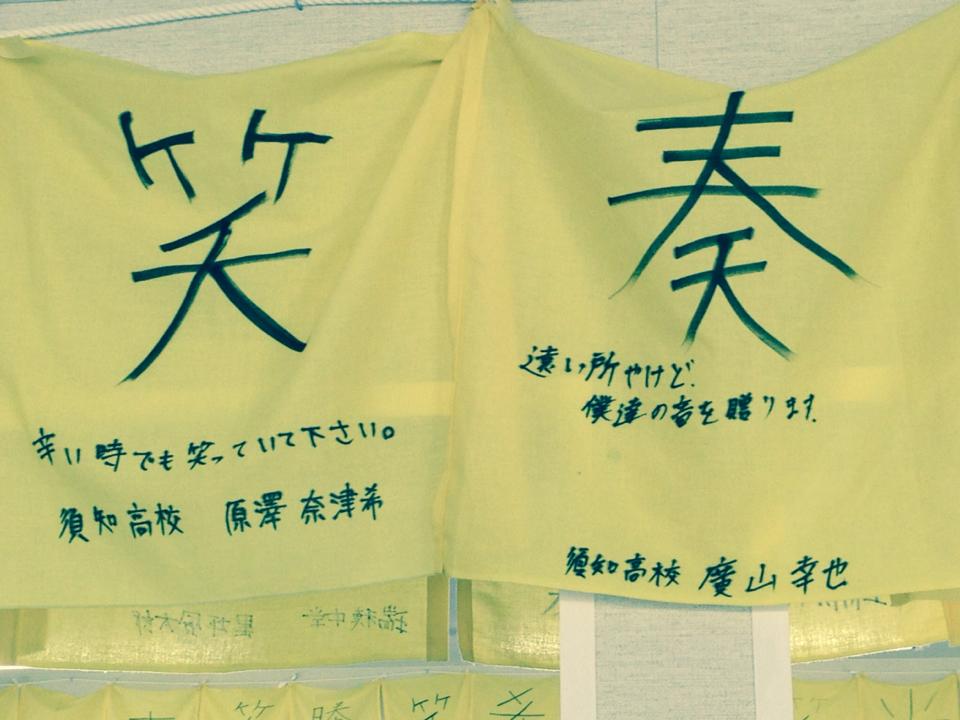 笑
辛い時でも笑っていて下さい。
須知高校 原澤 奈津希
奏
遠い所やけど、
僕達の音を贈ります。
須知高校 廣山 幸也
瑞穂中学
笑
勝
笑